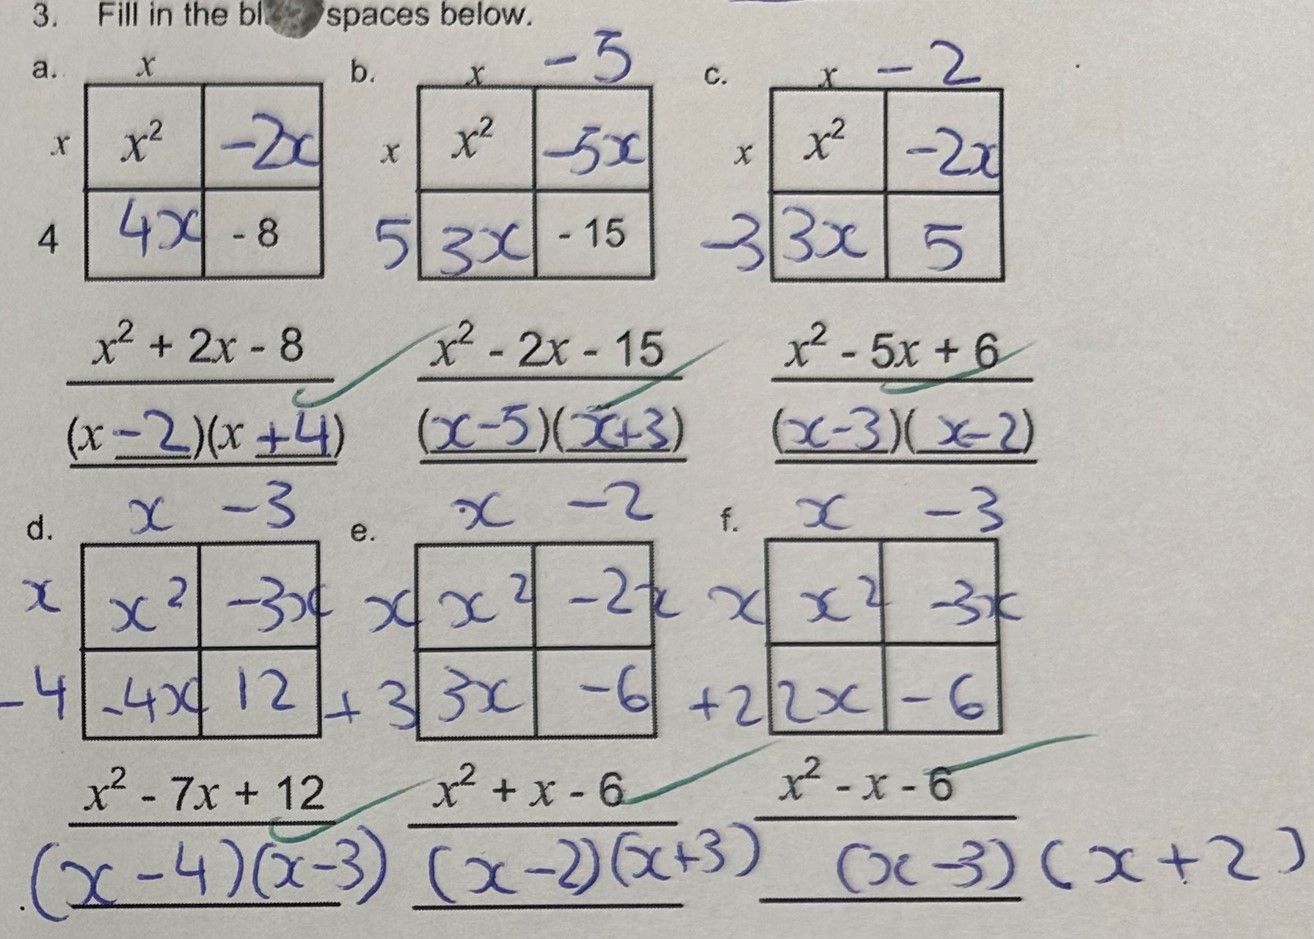 3. Fill in the bl spaces below.
a. x b. x - 5 c. x - 2
x x² -2x x x² -5x x x² -2x
4 4x - 8 5 3x - 15 -3 3x 5
x² + 2x - 8 x² - 2x - 15 x² - 5x + 6
(x -2)(x +4) (x-5)(x+3) (x-3)(x-2)
d. x -3 e. x -2 f. x -3
x x² -3x x x² -2x x x² -3x
-4 -4x 12 +3 3x -6 +2 2x -6
x² - 7x + 12 x² + x - 6 x² - x - 6
(x-4)(x-3) (x-2)(x+3) (x-3)(x+2)